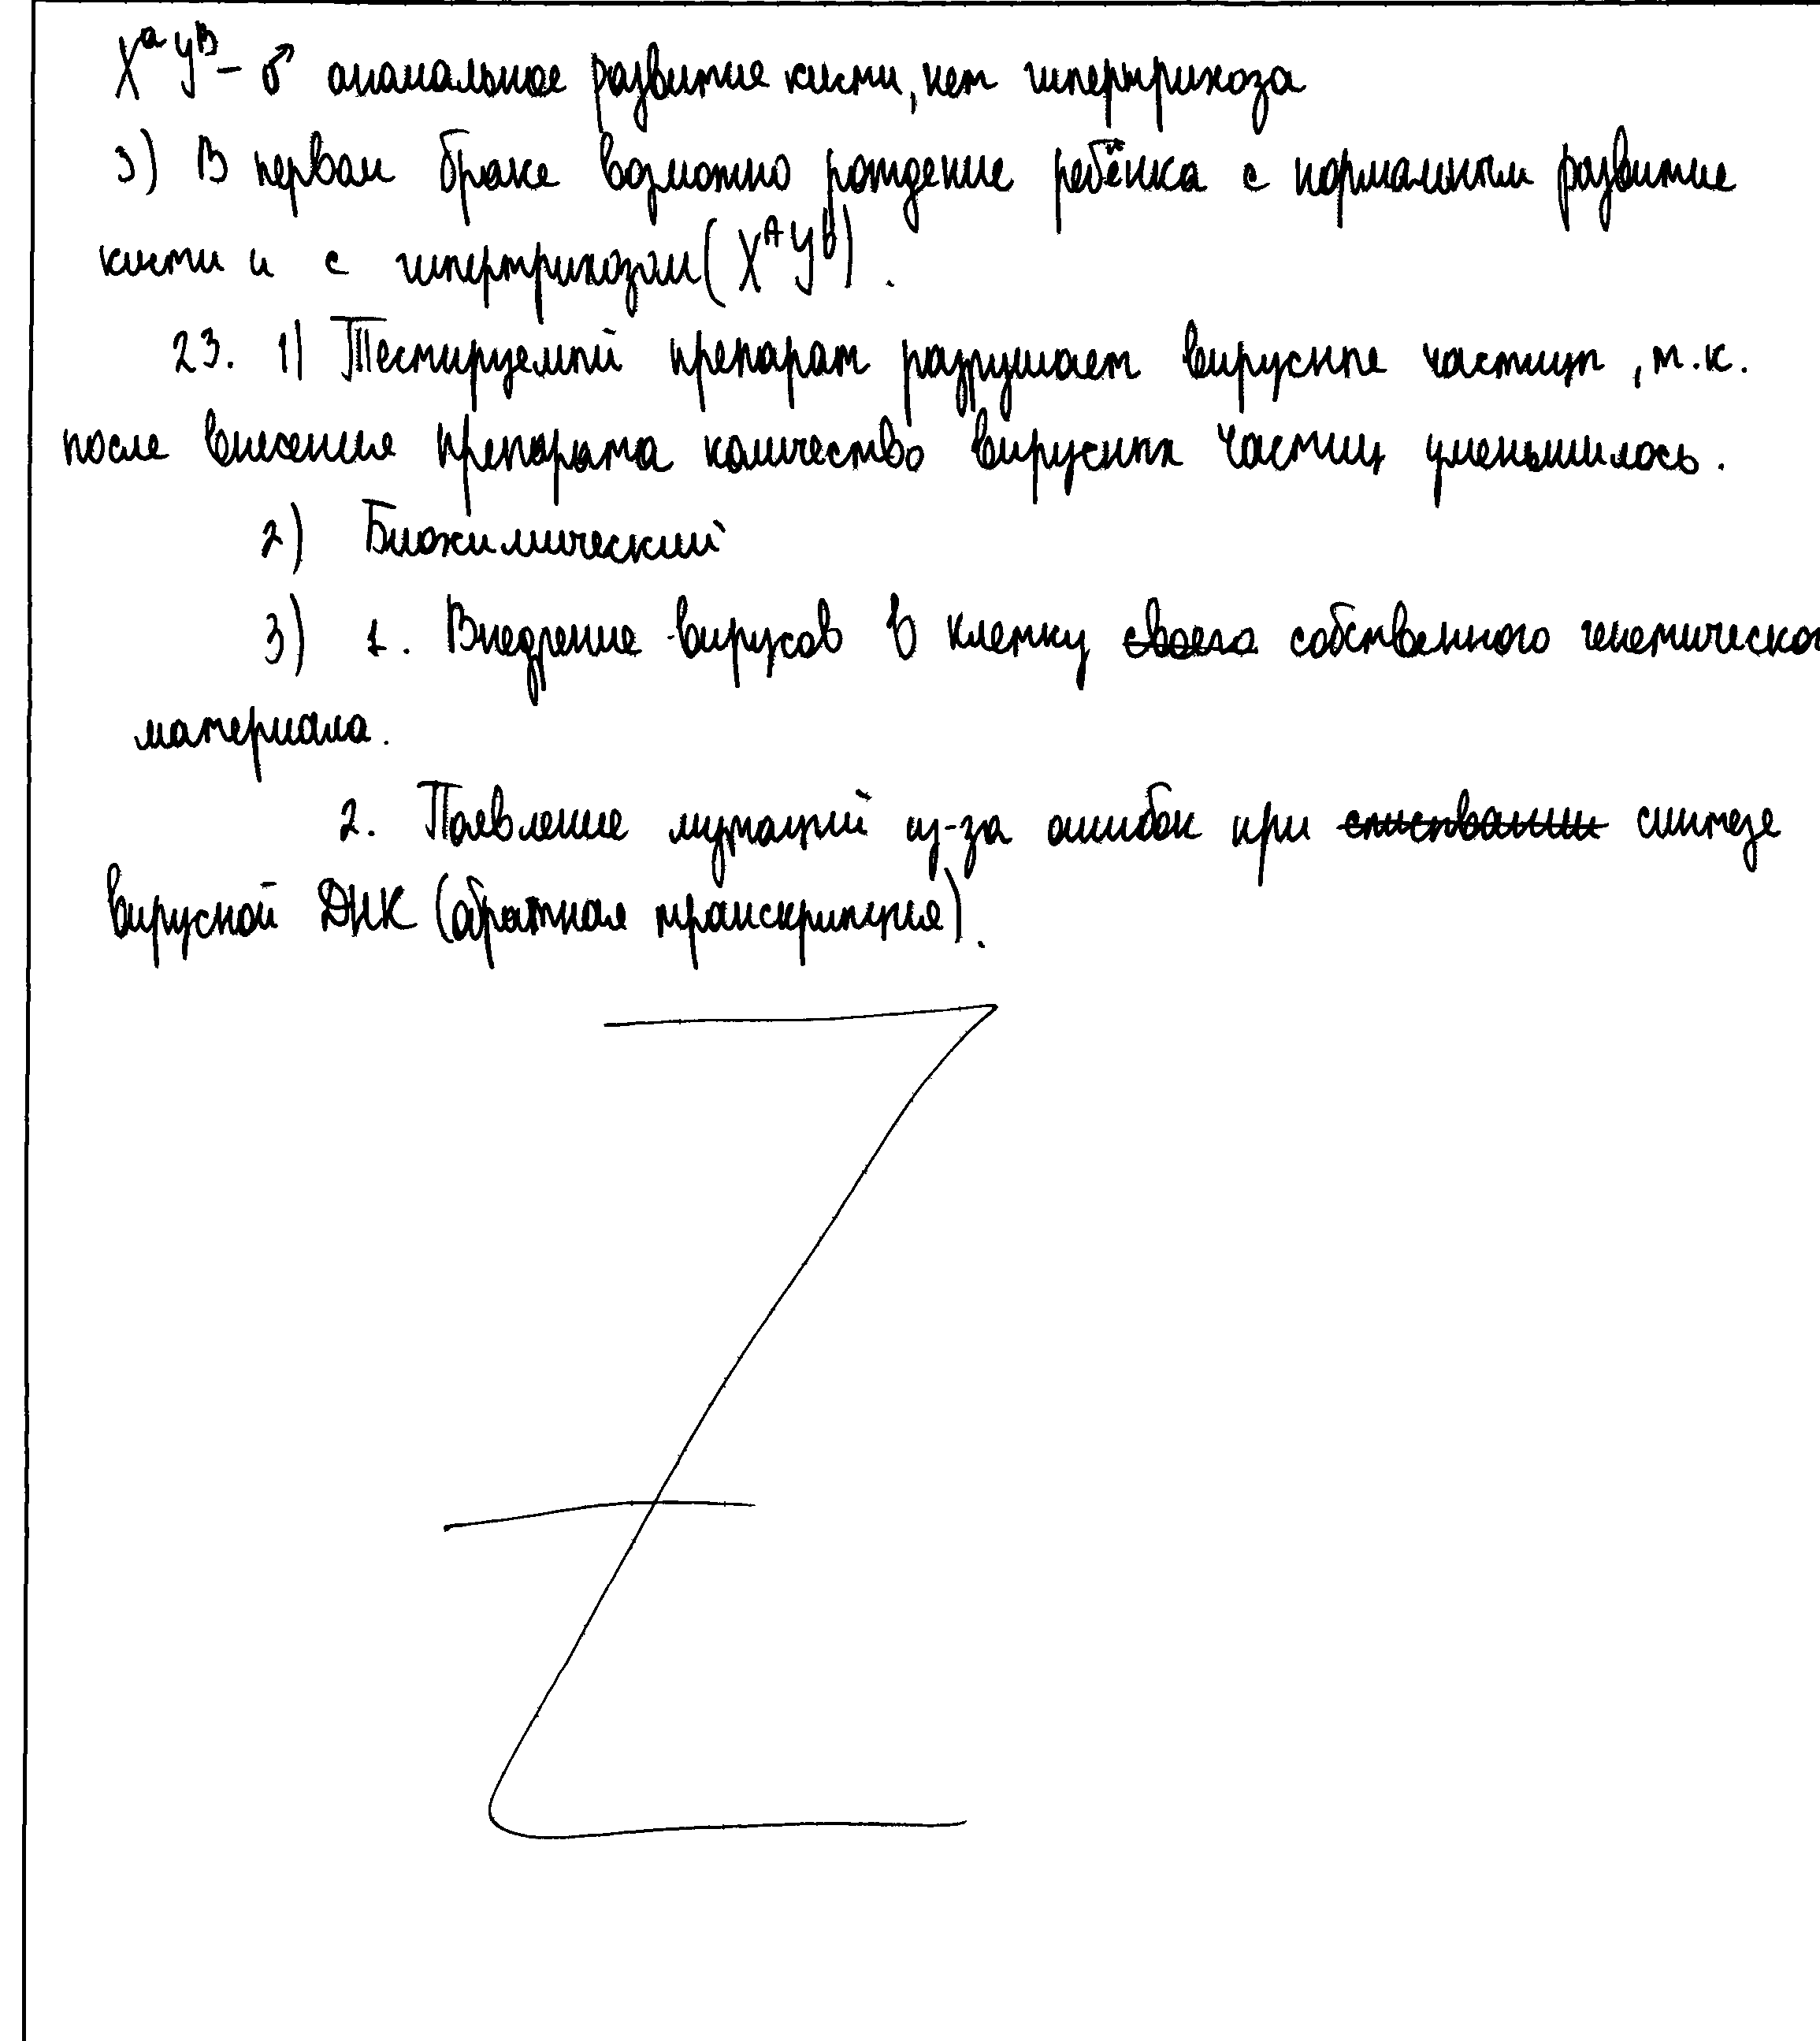 XᵃYᴮ – ♂ аномальное развитие кисти, нет гипертрихоза
3) В первом браке возможно рождение ребёнка с нормальным развитие
кисти и с гипертрихозом (XᴬYᵇ).
23. 1) Тестируемый препарат разрушает вирусные частицы, т.к.
после внесения препарата количество вирусных частиц уменьшилось.
2) Биохимический
3) 1. Внедрение вирусов в клетку своего собственного генетическог
материала.
2. Появление мутаций из-за ошибок при списывании синтезе
вирусной ДНК (обратная транскрипция).